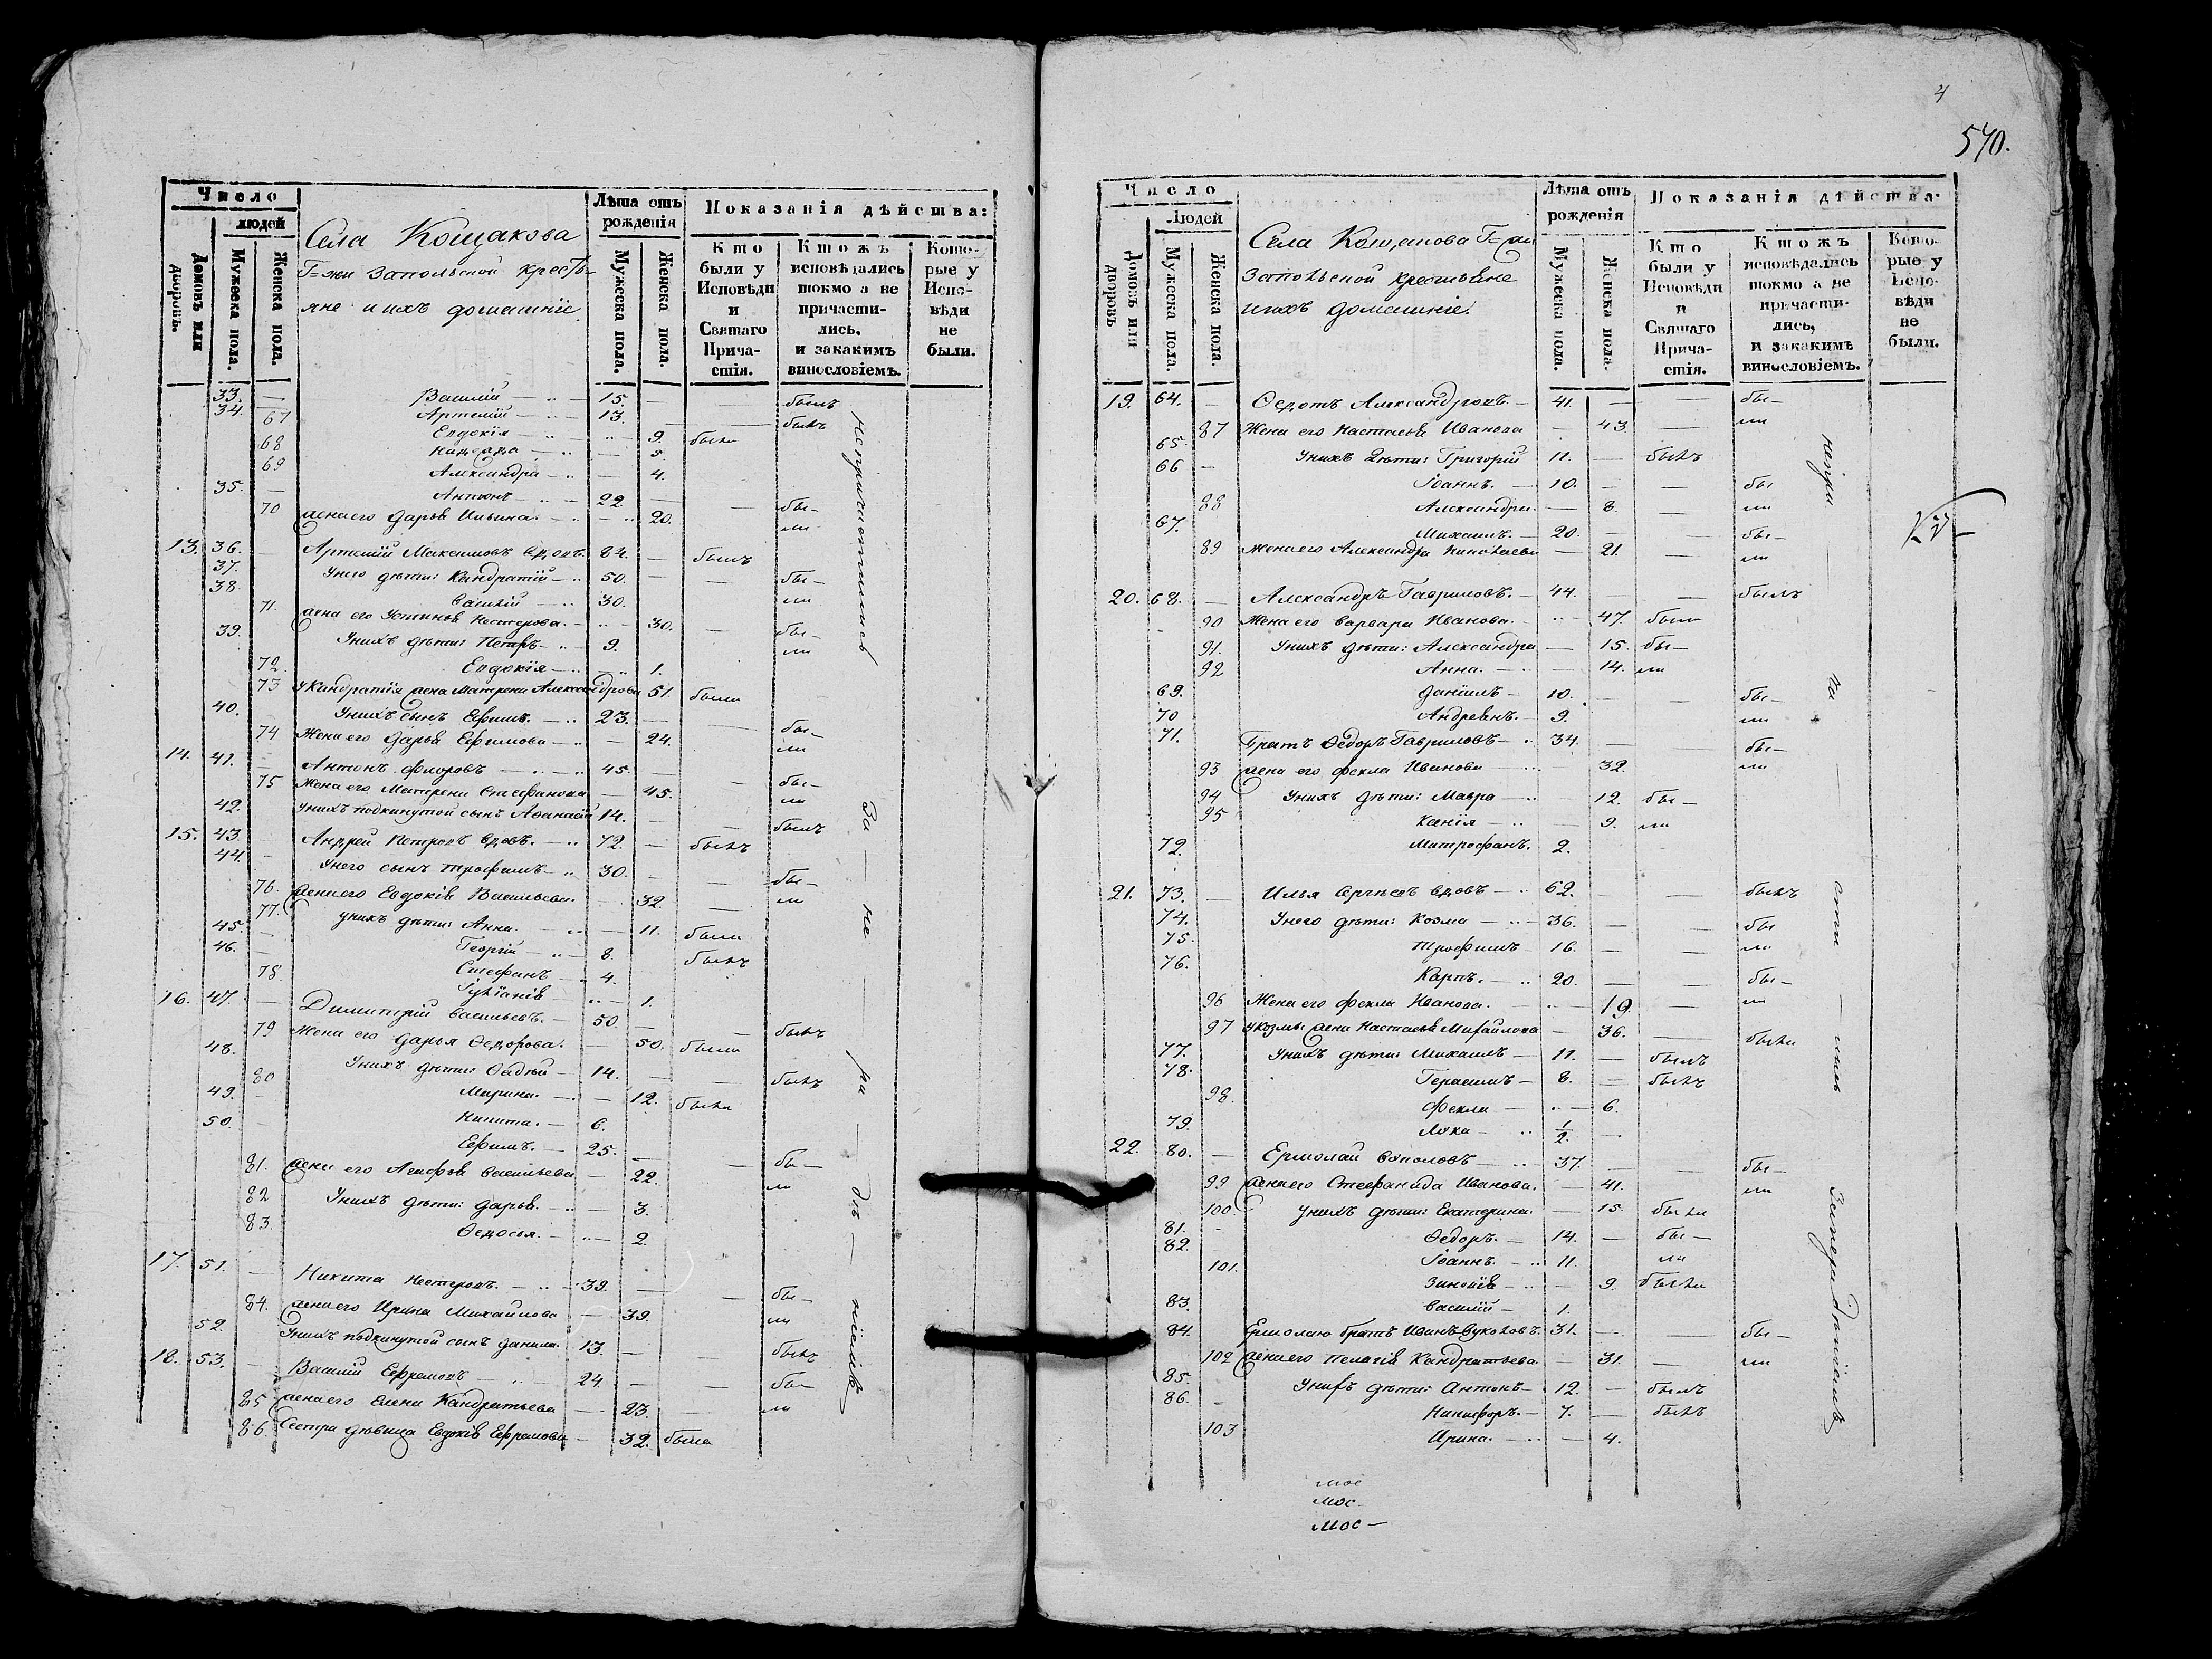 Число
людей
Домовъ или дворовъ.
Мужеска пола.
Женска пола.
Села Кощакова
Г=жи Запольской кресть-
яне и ихъ домашніе.
Лѣта отъ рожденія
Мужеска пола.
Женска пола.
Показанія дѣйства:
Кто были у Исповѣди и Святаго Прича-стія.
Ктожъ исповѣдались токмо а не причасти-лись, и закакимъ винословіемъ.
Кото-рые у Испо-вѣди не были.
33. — Василій — 15. — — былъ
34. Артемій — 13. — — былъ
67 Евдокія — 9. была
68 Надежда — 5
69 Александра — 4.
35. — Антонъ — 22. — — бы-
70 жена его Дарья Ильина. — 20. ли
13. 36. — Артемій Максимовъ вдовъ. 84. — былъ
37. У него дѣти: Кандратій — 50. — — бы-
38. Василій — 30. ли
71. жена его Устинья Нестерова. — 30. — бы-
39. У нихъ дѣти: Петръ — 9. ли
72. Евдокія — 1.
73 У Кандратія жена Матрена Александрова 51. была
40. — У нихъ сынъ Ефимъ. — 23. — — бы-
74 Жена его Дарья Ефимова — 24. ли
14. 41. — Антонъ Флоровъ — 45. — — бы-
75 Жена его Матрена Стефанова — 45. ли
42. У нихъ подкинутой сынъ Афанасій 14. — — былъ
15. 43. — Андрей Петровъ вдовъ. — 72. — былъ
44. — У него сынъ Трофимъ — 30. — — бы-
76. жена его Евдокія Васильева. — 32. — ли
77. У нихъ дѣти: Анна. — 11. была
45. — Георгій — 8. былъ
46. — Стефанъ — 4.
78. Іуліанія — 1.
16. 47. — Димитрій Васильевъ. — 50. — — былъ
79 Жена его Дарья Ѳедорова. — 50. была
48. У нихъ дѣти: Фадѣй — 14. — — былъ
80 Марина. — 12. была
49. — Никита. — 6.
50. — Ефимъ. — 25. — — бы-
81. жена его Агафья Васильева — 22. ли
82 У нихъ дѣти: Дарья. — 3.
83. Ѳедосья. — 2.
17. 51. — Никита Нестеровъ. — 39. — — бы-
84. жена его Ирина Михайлова — 39. ли
52. У нихъ подкинутой сынъ Данила. 13. — — былъ
18. 53. — Василій Ефремовъ — 24. — — бы-
85 жена его Елена Кандратьева — 23. — ли
86. Сестра дѣвица Евдокія Ефремова — 32. была
непричастились За не ра дѣ ніемъ
4
570.
Число
Людей
Домовъ или дворовъ
Мужеска пола.
Женска пола.
Села Кощакова Г=жи
Запольской крестьяне
и ихъ домашніе.
Лѣта отъ рожденія
Мужеска пола.
Женска пола.
Показанія дѣйства.
Кто были у Исповѣди и Святаго Прича-стія.
Ктожъ исповѣдались токмо а не причасти-лись, и закакимъ винословіемъ.
Кото-рые у Испо-вѣди не были.
19. 64. — Ѳедотъ Александровъ. — 41. — — бы-
87 Жена его Настасья Иванова — 43. — ли
65. У нихъ дѣти: Григорій 11. — былъ
66 — Іоаннъ. — 10. — — бы
88 Александра. — 8. — ли
67. Михаилъ. — 20. — — бы-
89 жена его Александра Николаева — 21. — ли
20. 68. — Александръ Гавриловъ. — 44. — — былъ
90 Жена его Варвара Иванова. — 47. была
91. У нихъ дѣти: Александра — 15. бы-
92 Анна. — 14. ли
69. Даніилъ — 10. — — бы-
70 Андреянъ. — 9. ли
71. Братъ Ѳедоръ Гавриловъ — 34. — бы-
93 жена его Фекла Иванова — 32. ли
94 У нихъ дѣти: Мавра — 12. бы-
95 Ксенія — 9. ли
72. Митрофанъ. 2.
21. 73. — Илья Сергѣевъ вдовъ — 62. — — былъ
74. У него дѣти: Козма — 36. — — бы
75. Трофимъ — 16. — ли
76. Карпъ. — 20. — — бы-
96 Жена его Фекла Иванова. — 19. — ли
97 У Козмы жена Настасья Михайлова — 36. — была
77. У нихъ дѣти: Михаилъ — 11. — былъ
78. Герасимъ — 8. — былъ
98. Фекла — 6.
79. Лука — 1/2. —
22. 80. — Ермолай Соколовъ — 37. — — бы-
99 жена его Стефанида Иванова. — 41. ли
100. У нихъ дѣти: Екатерина. — 15. была
81. — Ѳедоръ. — 14. — бы-
82. Іоаннъ. — 11. ли
101. Зиновія — 9. была
83. Василій — 1.
84. Ермолаю братъ Иванъ Соколовъ. 31. — — бы-
102 жена его Пелагія Кандратьева. — 31. — ли
85. У нихъ дѣти: Антонъ — 12. — былъ
86. — Никифоръ. — 7. — былъ
103 Ирина. — 4.
непри ча сти лись Занерадѣніемъ
мос
мос-
мос-